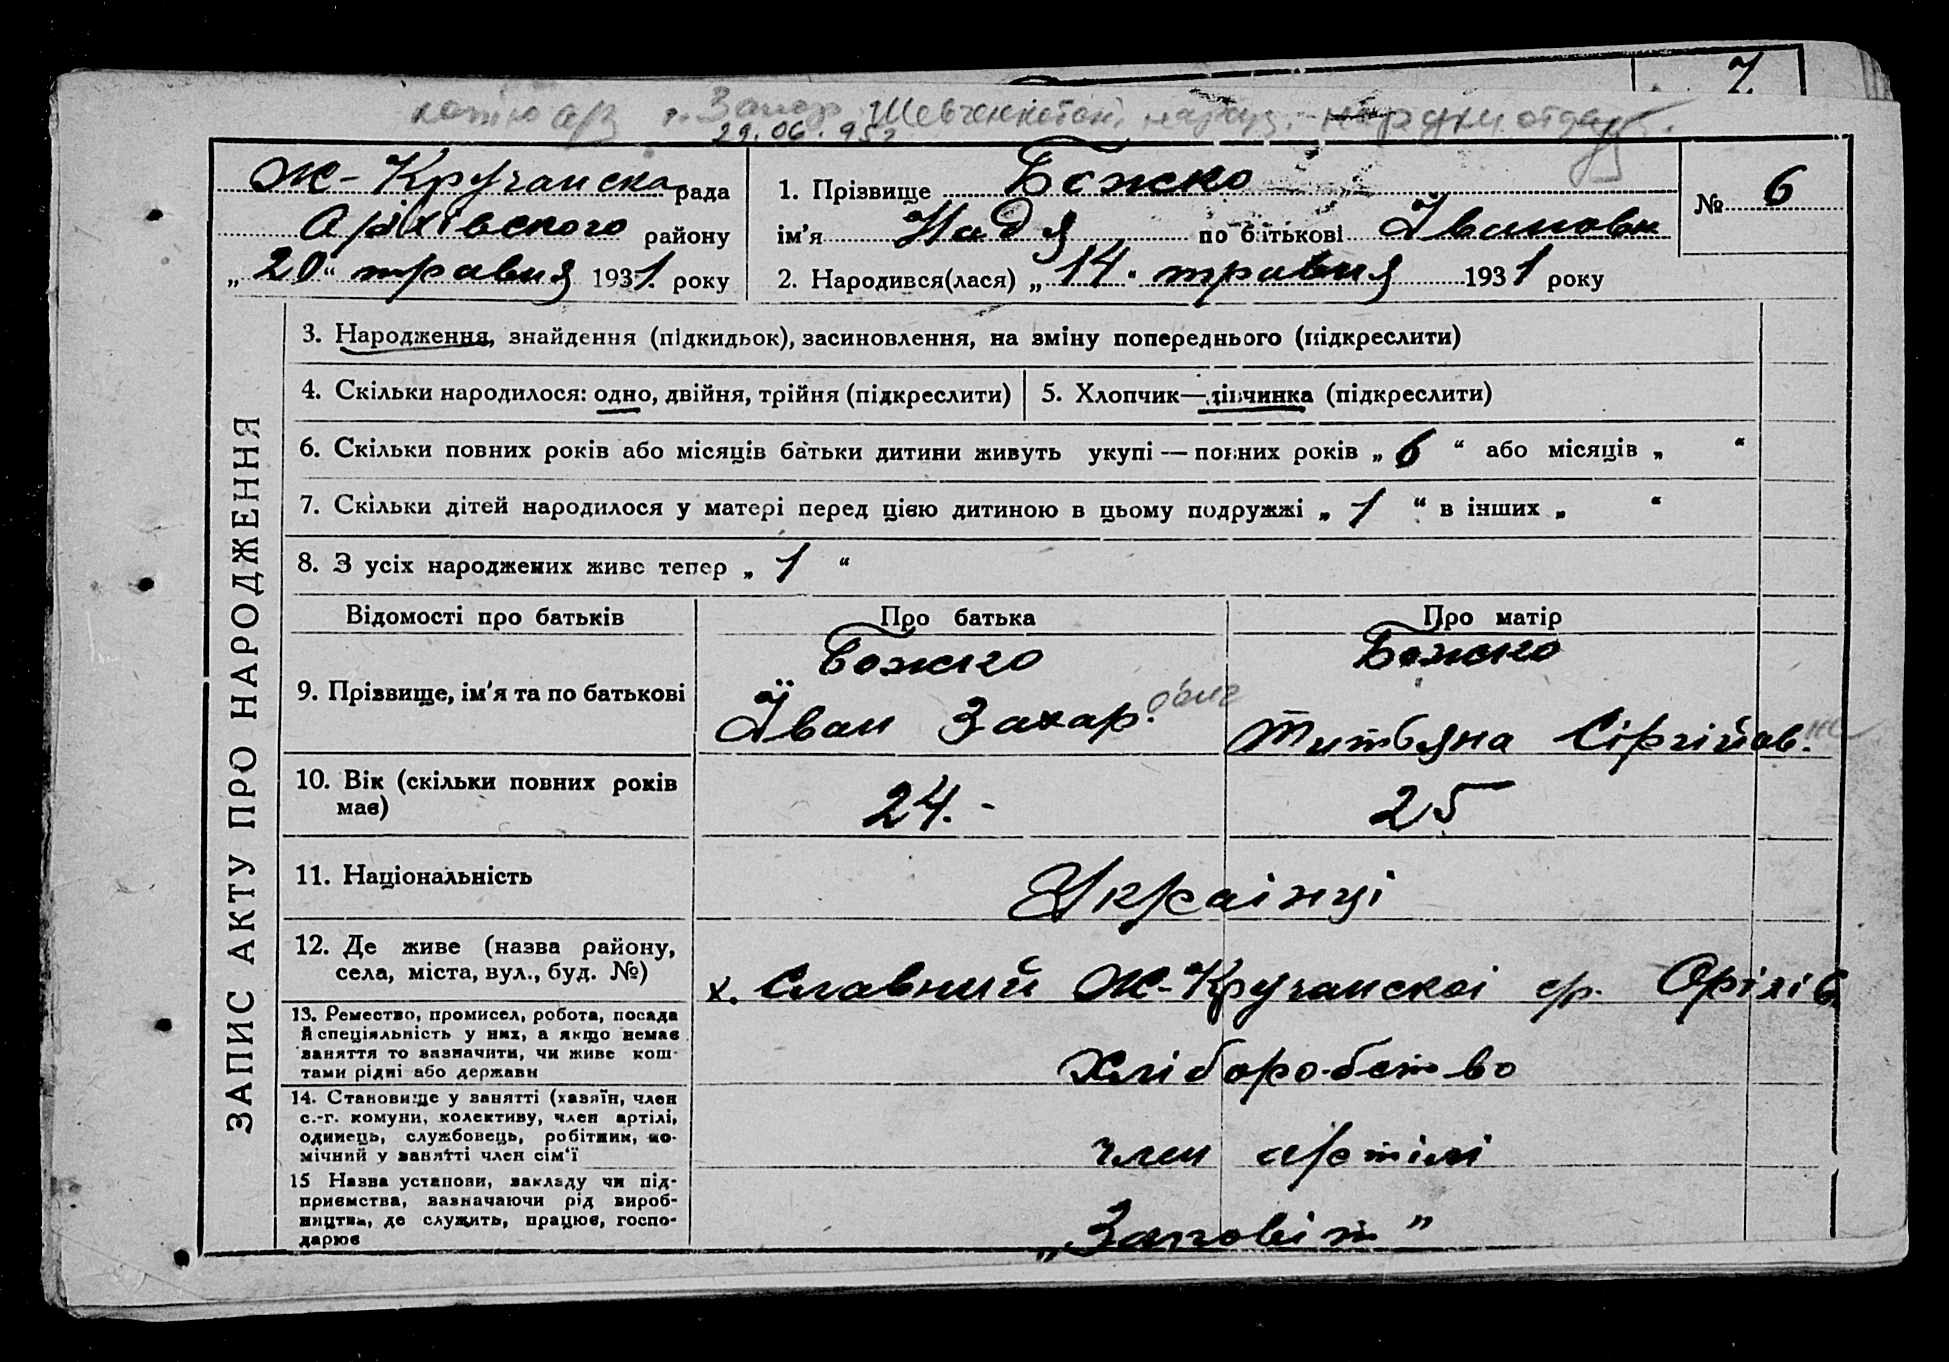 7
29.06.95г
Ж-Кручанска рада
Оріхівского району
„20“ травня 1931 року
1. Прізвище Божко
ім'я Надя по бітькові Іванович
2. Народився(лася) „14“ травня 1931 року
№ 6
ЗАПИС АКТУ ПРО НАРОДЖЕННЯ
3. Народження, знайдення (підкидьок), засиновлення, на зміну попереднього (підкреслити)
4. Скільки народилося: одно, двійня, трійня (підкреслити)
5. Хлопчик—дівчинка (підкреслити)
6. Скільки повних років або місяців батьки дитини живуть укупі — повних років „6“ або місяців „ “
7. Скільки дітей народилося у матері перед цією дитиною в цьому подружжі „1“ в інших „ “
8. З усіх народжених живе тепер „1“
Відомості про батьків
Про батька
Про матір
9. Прізвище, ім'я та по батькові
Божко
Їван Захар.ович
Божко
Титьяна Сіргійов.на
10. Вік (скільки повних років
має)
24.-
25
11. Національність
Украінці
12. Де живе (назва району,
села, міста, вул., буд. №)
х. Славний Ж-Кручанскоі ср. Оріхів
13. Ремество, промисел, робота, посада
й спеціяльність у них, а якщо немає
заняття то зазначити, чи живе кош-
тами рідні або держави
Хліборобство
14. Становище у занятті (хазяїн, член
с.-г. комуни, колективу, член артілі,
одинець, службовець, робітник, по-
мічний у занятті член сім'ї
член артілі
15 Назва установи, закладу чи під-
приємства, зазначаючи рід вироб-
ництва, де служить, працює, госпо-
дарює
„Заповіт”